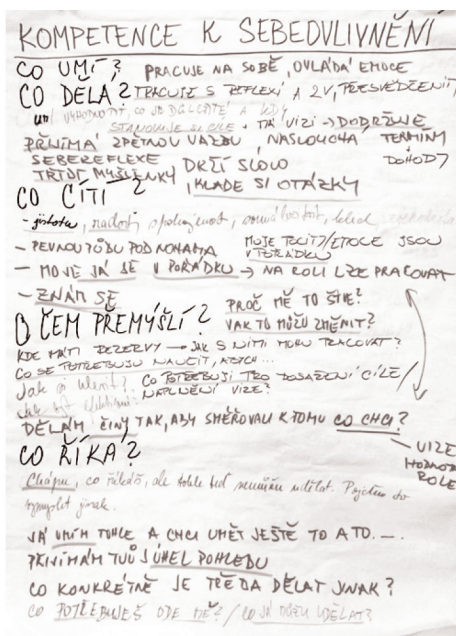 KOMPETENCE K SEBEOVLIVNĚNÍ
CO UMÍ? PRACUJE NA SOBĚ, OVLÁDÁ EMOCE
CO DĚLÁ? PRACUJE S REFLEXÍ A ZV, PŘESVĚDČENÍ
umí VYHODNOTIT, CO JE DŮLEŽITÉ A KDY
STANOVUJE SI CÍLE + MÁ VIZI → DODRŽUJE
PŘIJÍMÁ ZPĚTNOU VAZBU, NASLOUCHÁ TERMÍNY
SEBEREFLEXE DOHODY
TŘÍDÍ MYŠLENKY DRŽÍ SLOVO
CO CÍTÍ? KLADE SI OTÁZKY
- jistotu, radost, spokojenost, klid,
- PEVNOU PŮDU POD NOHAMA MOJE POCITY/EMOCE JSOU
V POŘÁDKU
- MOJE JÁ JE V POŘÁDKU → NA ROLI LZE PRACOVAT
- ZNÁM SE
PROČ MĚ TO ŠTVE?
O ČEM PŘEMÝŠLÍ? JAK TO MŮŽU ZMĚNIT?
KDE MÁM REZERVY → JAK S NIMI MOHU PRACOVAT?
CO SE POTŘEBUJU NAUČIT, ABYCH...
Jak si věřit? CO POTŘEBUJI PRO DOSAŽENÍ CÍLE/
Jak být NAPLNĚNÍ VIZE?
DĚLÁM ČINY TAK, ABY SMĚŘOVALI K TOMU CO CHCI?
- VIZE
CO ŘÍKÁ? HODNOTA
ROLE
Chápu, co říkáš, ale tohle teď neumím udělat. Pojďme to
vymyslet jinak.
JÁ UMÍM TOHLE A CHCI UMĚT JEŠTĚ TO A TO...
PŘIJÍMÁM TVŮJ ÚHEL POHLEDU
CO KONKRÉTNĚ JE TŘEBA DĚLAT JINAK?
CO POTŘEBUJEŠ ODE MĚ? / CO JÁ MŮŽU UDĚLAT?